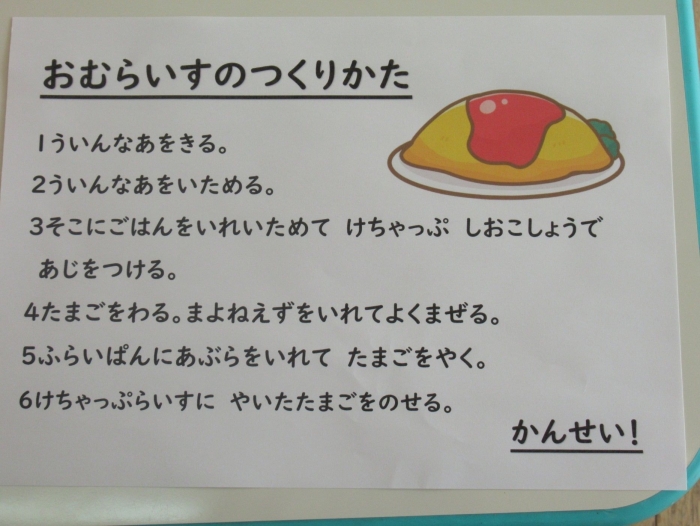 おむらいすのつくりかた
1ういんなあをきる。
2ういんなあをいためる。
3そこにごはんをいれいためて けちゃっぷ しおこしょうで
あじをつける。
4たまごをわる。まよねえずをいれてよくまぜる。
5ふらいぱんにあぶらをいれて たまごをやく。
6けちゃっぷらいすに やいたたまごをのせる。
かんせい!